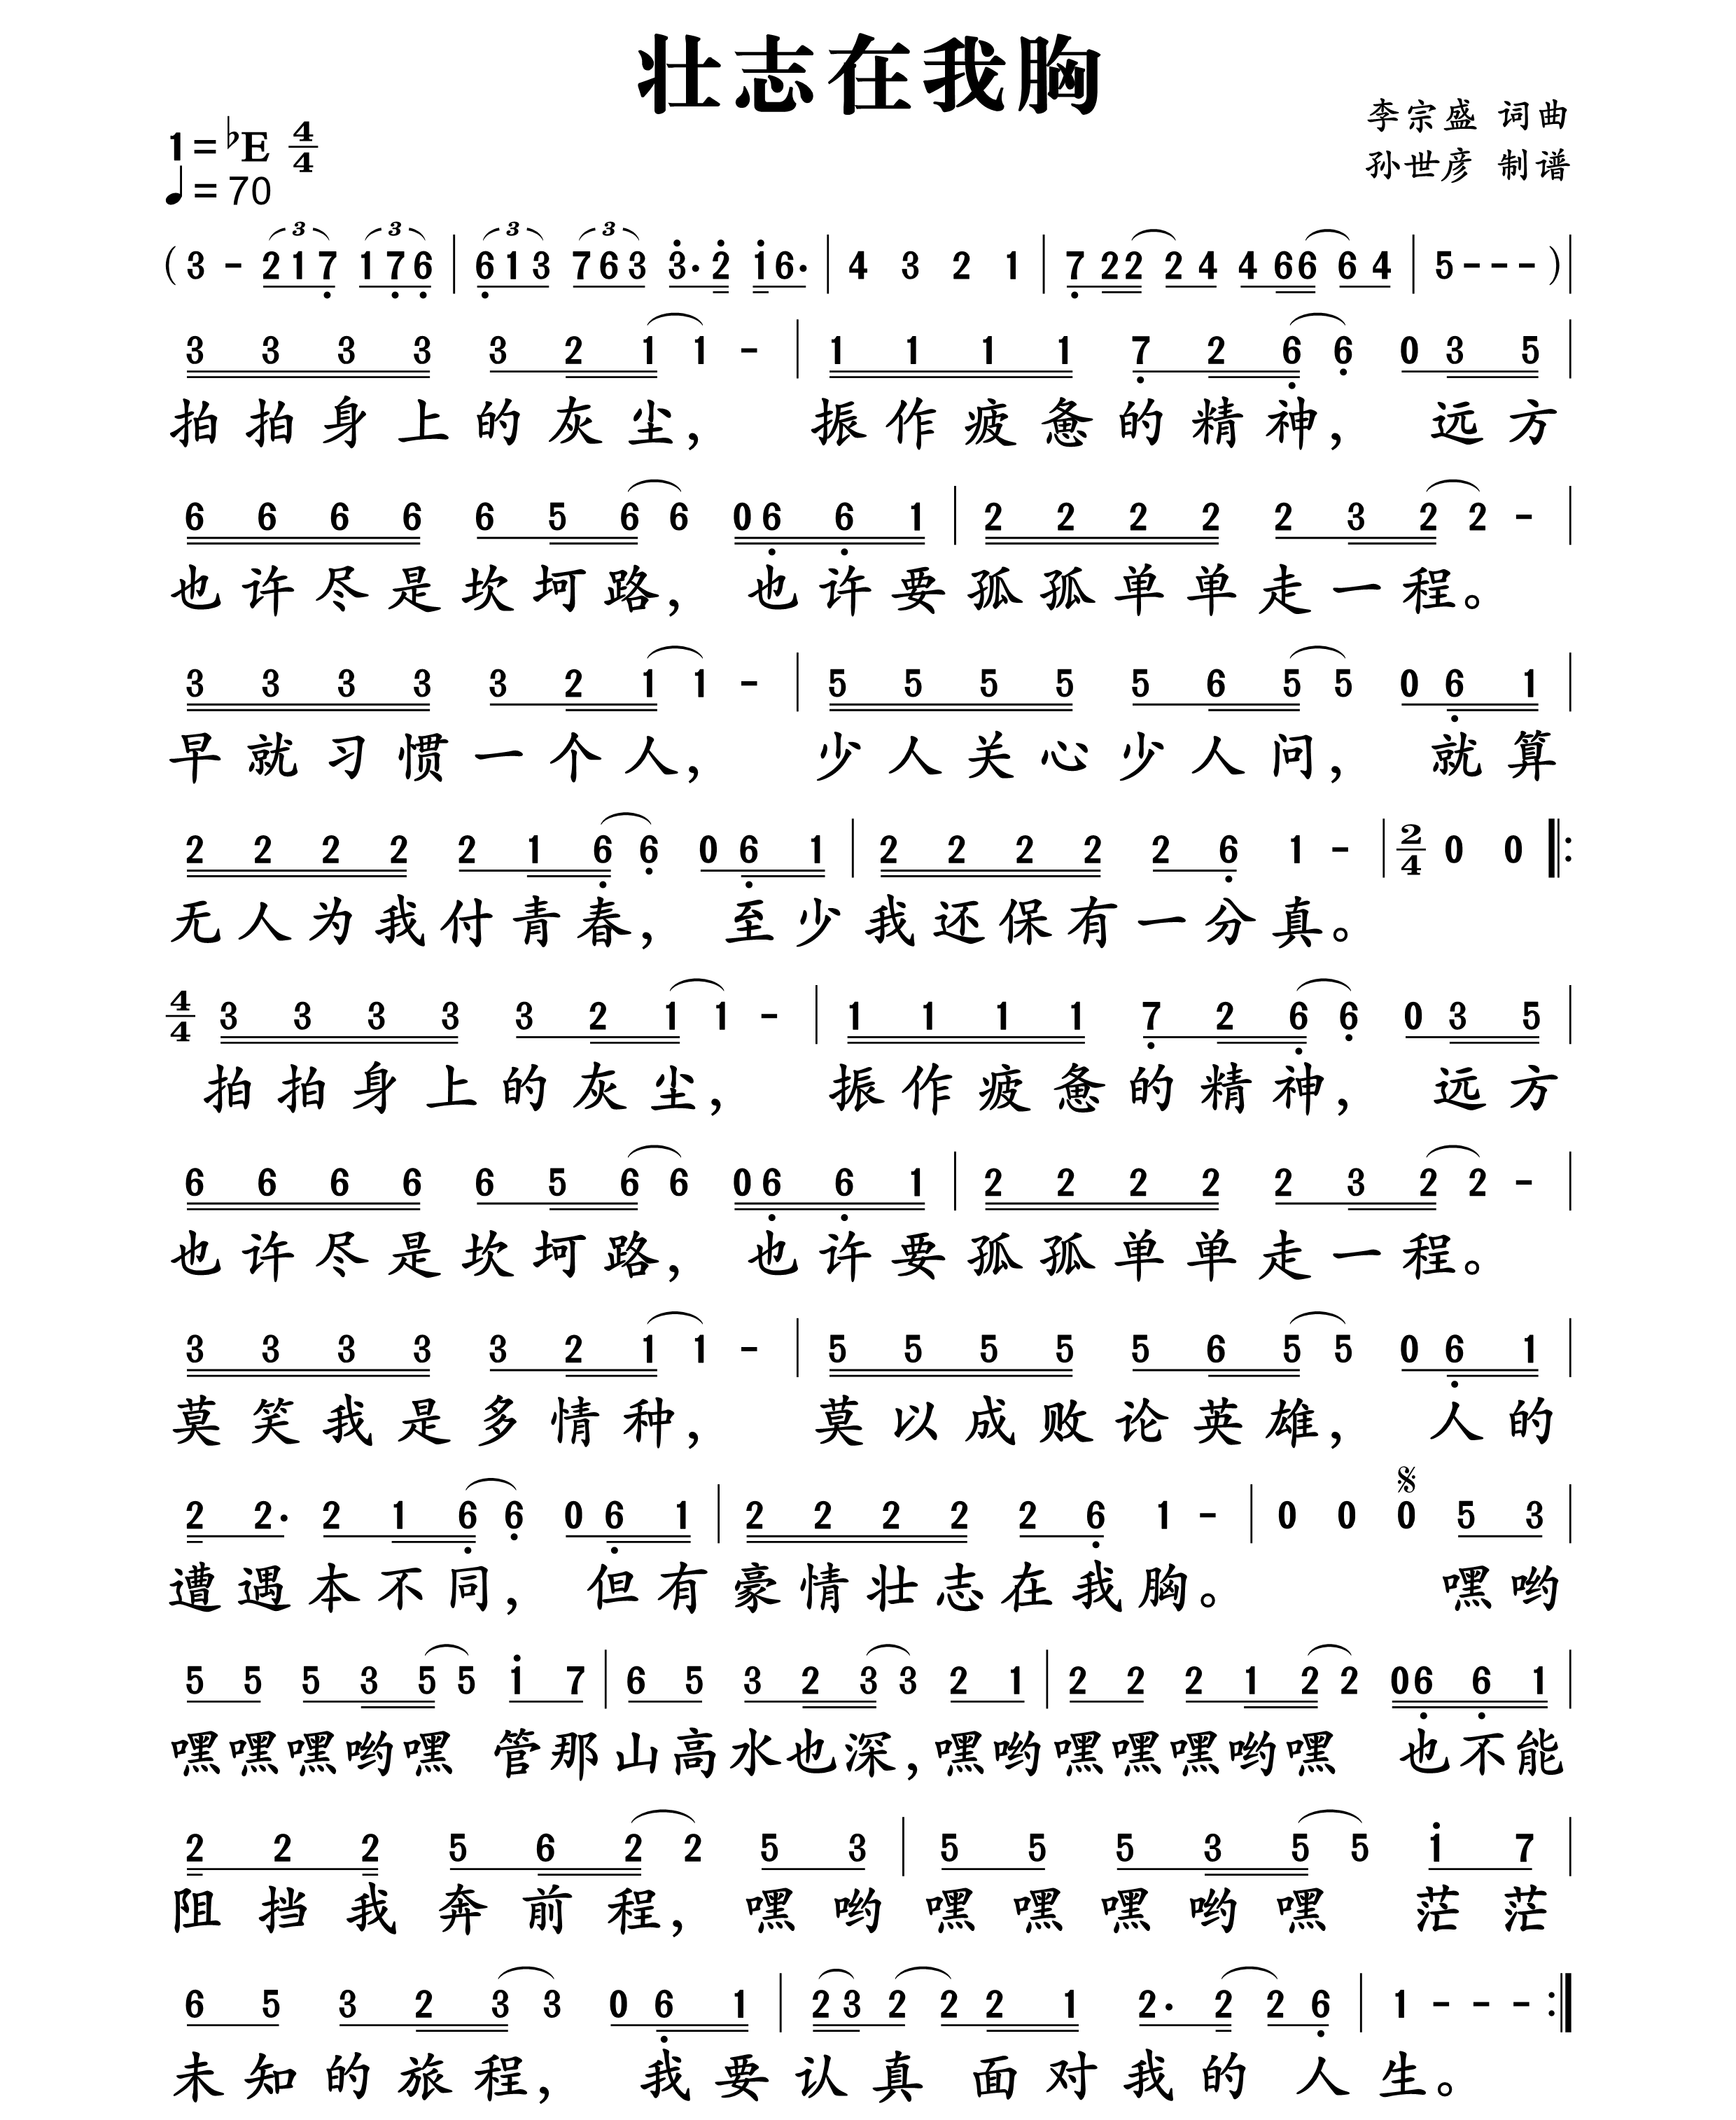 壮志在我胸
李宗盛 词曲
1=♭E 4/4
孙世彦 制谱
♩=70
(3 - 217 176 | 613 763 3·2 16· | 4 3 2 1 | 722 24 466 64 | 5 - - - )|
3 3 3 3 3 2 1 1 - | 1 1 1 1 7 2 6 6 0 3 5 |
拍拍身上的灰尘, 振作疲惫的精神, 远方
6 6 6 6 6 5 6 6 06 6 1 | 2 2 2 2 2 3 2 2 - |
也许尽是坎坷路, 也许要孤孤单单走一程。
3 3 3 3 3 2 1 1 - | 5 5 5 5 5 6 5 5 0 6 1 |
早就习惯一个人, 少人关心少人问, 就算
2 2 2 2 2 1 6 6 0 6 1 | 2 2 2 2 2 6 1 - | 2/4 0 0 ‖:
无人为我付青春, 至少我还保有一分真。
4/4 3 3 3 3 3 2 1 1 - | 1 1 1 1 7 2 6 6 0 3 5 |
拍拍身上的灰尘, 振作疲惫的精神, 远方
6 6 6 6 6 5 6 6 06 6 1 | 2 2 2 2 2 3 2 2 - |
也许尽是坎坷路, 也许要孤孤单单走一程。
3 3 3 3 3 2 1 1 - | 5 5 5 5 5 6 5 5 0 6 1 |
莫笑我是多情种, 莫以成败论英雄, 人的
2 2· 2 1 6 6 0 6 1 | 2 2 2 2 2 6 1 - | 0 0 0 5 3 |
遭遇本不同, 但有豪情壮志在我胸。 嘿哟
5 5 5 3 5 5 1 7 | 6 5 3 2 3 3 2 1 | 2 2 2 1 2 2 06 6 1 |
嘿嘿嘿哟嘿 管那山高水也深,嘿哟嘿嘿嘿哟嘿 也不能
2 2 2 5 6 2 2 5 3 | 5 5 5 3 5 5 1 7 |
阻挡我奔前程, 嘿哟嘿嘿嘿哟嘿 茫茫
6 5 3 2 3 3 0 6 1 | 23 2 2 2 1 2· 2 2 6 | 1 - - - :‖
未知的旅程, 我要认真面对我的人生。